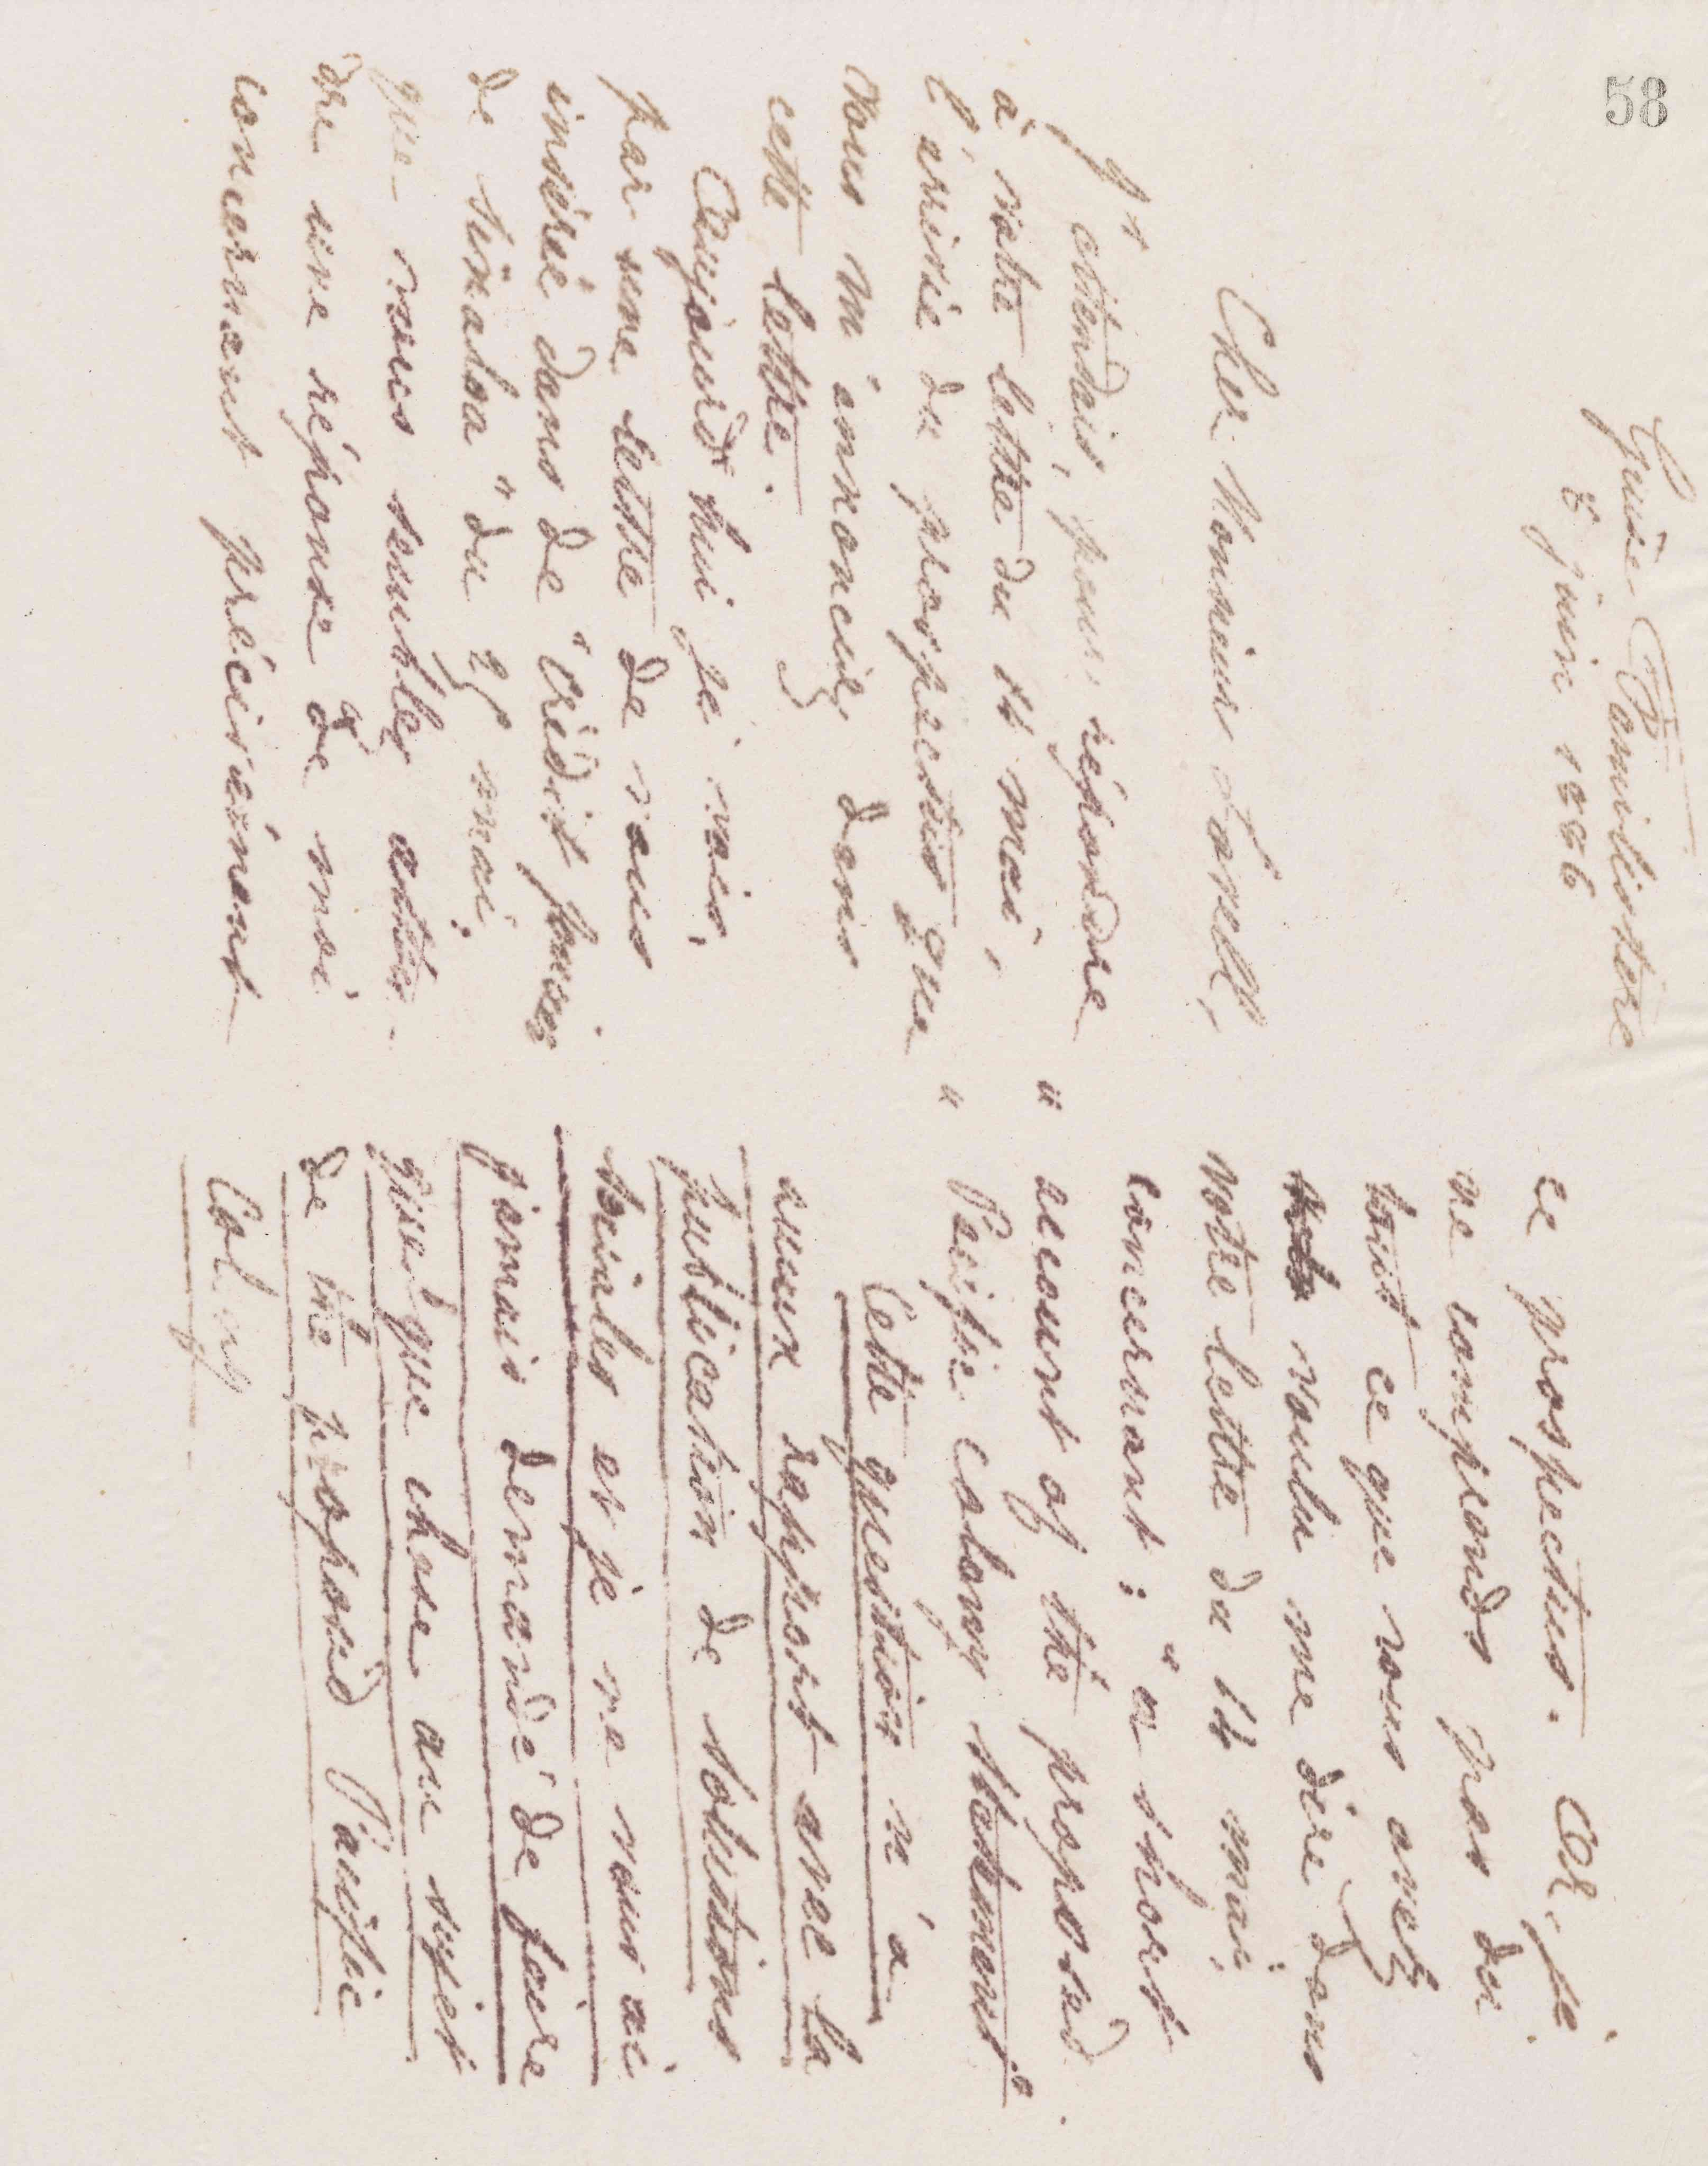 58
Guise Familistère
8 juin 1886
Cher Monsieur Lovell,
J'attendais, pour répondre
à votre lettre du 14 mai,
l'arrivée du prospectus que
vous m'annonciez dans
cette lettre.
Aujourd'hui je vois,
par une lettre de vous
insérée dans de "Crédit foncier
de Sinaloa" du 25 mai,
que vous semblez atten-
dre une réponse de moi
concernant précisément
ce prospectus. Or, je
ne comprends pas du
tout ce que vous avez
voulu me dire dans
votre lettre du 14 mai,
concernant : "a short
" account of the proposed
" Pacific colony statement".
Cette question n'a
aucun rapport avec la
publication de Solutions
sociales et je ne vous ai
jamais demandé de faire
quelque chose au sujet
de the proposed Pacific
Colony.